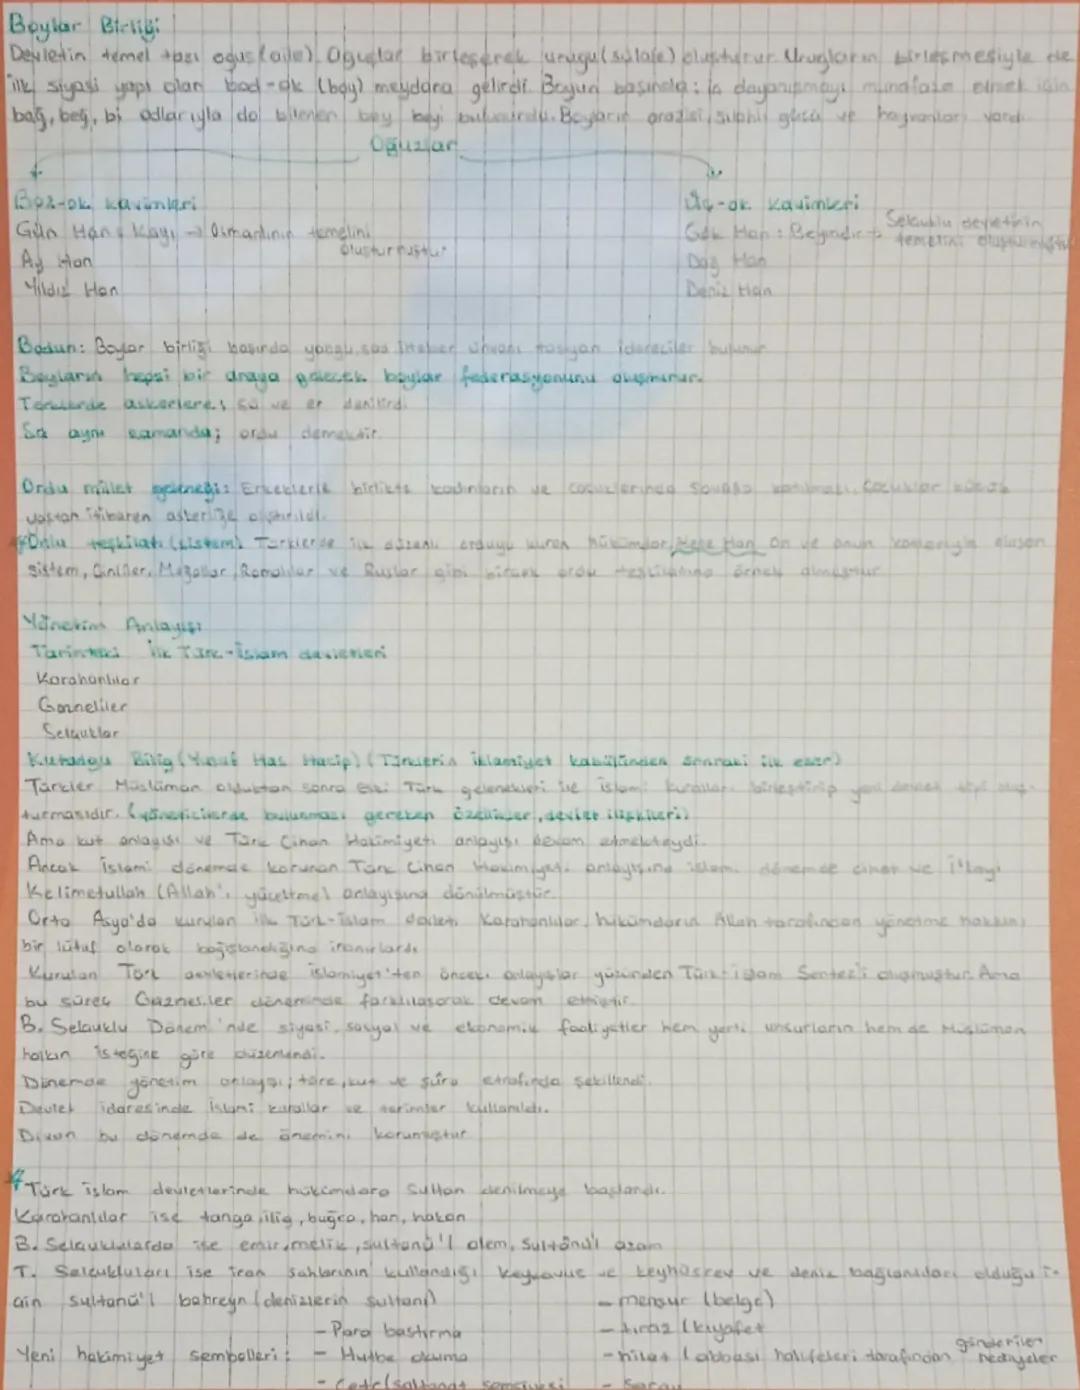 Boylar Birliği:
Devletin temel taşı oguş (aile). Oguşlar birleşerek urugu (sülale) oluşturur. Urugların birleşmesiyle de
ilk siyasi yapı olan bod-ok (boy) meydana gelirdi. Boyun başında; iç dayanışmayı muhafaza etmek için
bağ, beğ, bi adlarıyla da bilenen boy beyi bulunurdu. Boyların arazisi, silahlı gücü ve hayvanları vardı.
Oğuzlar
Boz-ok kavimleri
Üç-ok kavimleri
Gün Han: Kayı → Osmanlının temelini oluşturmuştur
Gök Han: Bayındır → Selçuklu devletinin temelini oluşturmuştur
Ay Han
Dağ Han
Yıldız Han
Deniz Han
Bodun: Boylar birliği başında yabgu, şad, İlteber ünvanı taşıyan idareciler bulunur
Boyların hepsi bir araya gelecek boylar federasyonunu oluşturur.
Türklerde askerlere; sü ve er denilirdi.
Sü aynı zamanda; ordu demektir.
Ordu millet geleneği: Erkeklerle birlikte kadınların ve çocuklarında savaşa katılması. Çocuklar küçük
yaştan itibaren askerliğe alıştırıldı.
Onlu teşkilatı (sistem) Türklerde ilk düzenli orduyu kuran hükümdar Mete Han. On ve onun katlarıyla oluşan
sistem, Çinliler, Moğollar, Romalılar ve Ruslar gibi birçok ordu teşkilatına örnek olmuştur
Yönetim Anlayışı
Tarihteki ilk Türk-İslam devletleri
Karahanlılar
Gazneliler
Selçuklar
Kutadgu Bilig (Yusuf Has Hacip) (Türklerin İslamiyet kabülünden sonraki ilk eser)
Türkler Müslüman olduktan sonra Eski Türk gelenekleri ile islami kuralları birleştirip yeni devlet tipi oluş-
turmasıdır. (yöneticilerde bulunması gereken özellikler, devlet ilişkileri)
Ama kut anlayışı ve Türk Cihan Hakimiyeti anlayışı devam etmekteydi.
Ancak İslami dönemde korunan Türk Cihan Hakimiyeti anlayışına islami dönemde cihat ve İ'layi
Kelimetullah (Allah'ı yüceltme) anlayışına dönülmüştür.
Orta Asya'da kurulan ilk Türk-İslam devleti Karahanlılar, hükümdarın Allah tarafından yönetme hakkını
bir lütuf olarak bağışlandığına inanırlardı
Kurulan Türk devletlerinde islamiyet'ten önceki anlayışlar yüzünden Türk-islam Sentezi oluşmuştur. Ama
bu süreç Gazneliler döneminde farklılaşarak devam etmiştir.
B. Selçuklu Dönemi'nde siyasi, sosyal ve ekonomik faaliyetler hem yerli unsurların hem de Müslüman
halkın isteğine göre düzenlendi.
Dönemde yönetim anlayışı; töre, kut ve şûra etrafında şekillendi.
Devlet idaresinde İslami kurallar ve terimler kullanıldı.
Divan bu dönemde de önemini korumuştur
Türk islam devletlerinde hükümdara Sultan denilmeye başlandı.
Karahanlılar ise tanga, ilig, buğra, han, hakan
B. Selçuklularda ise emir, melik, sultanü'l alem, Sultânü'l azam
T. Selçukluları ise iran şahlarının kullandığı keykavus ve keyhüsrev ve deniz bağlantıları olduğu i-
çin Sultanü'l bahreyn (denizlerin sultanı)
- menşur (belge)
- Para bastırma
- tıraz (kıyafet
Yeni hakimiyet sembolleri: - Hutbe okuma
- hilat (abbasi halifeleri tarafından gönderilen hediyeler
- Çetr (saltanat şemsiyesi
- Saray